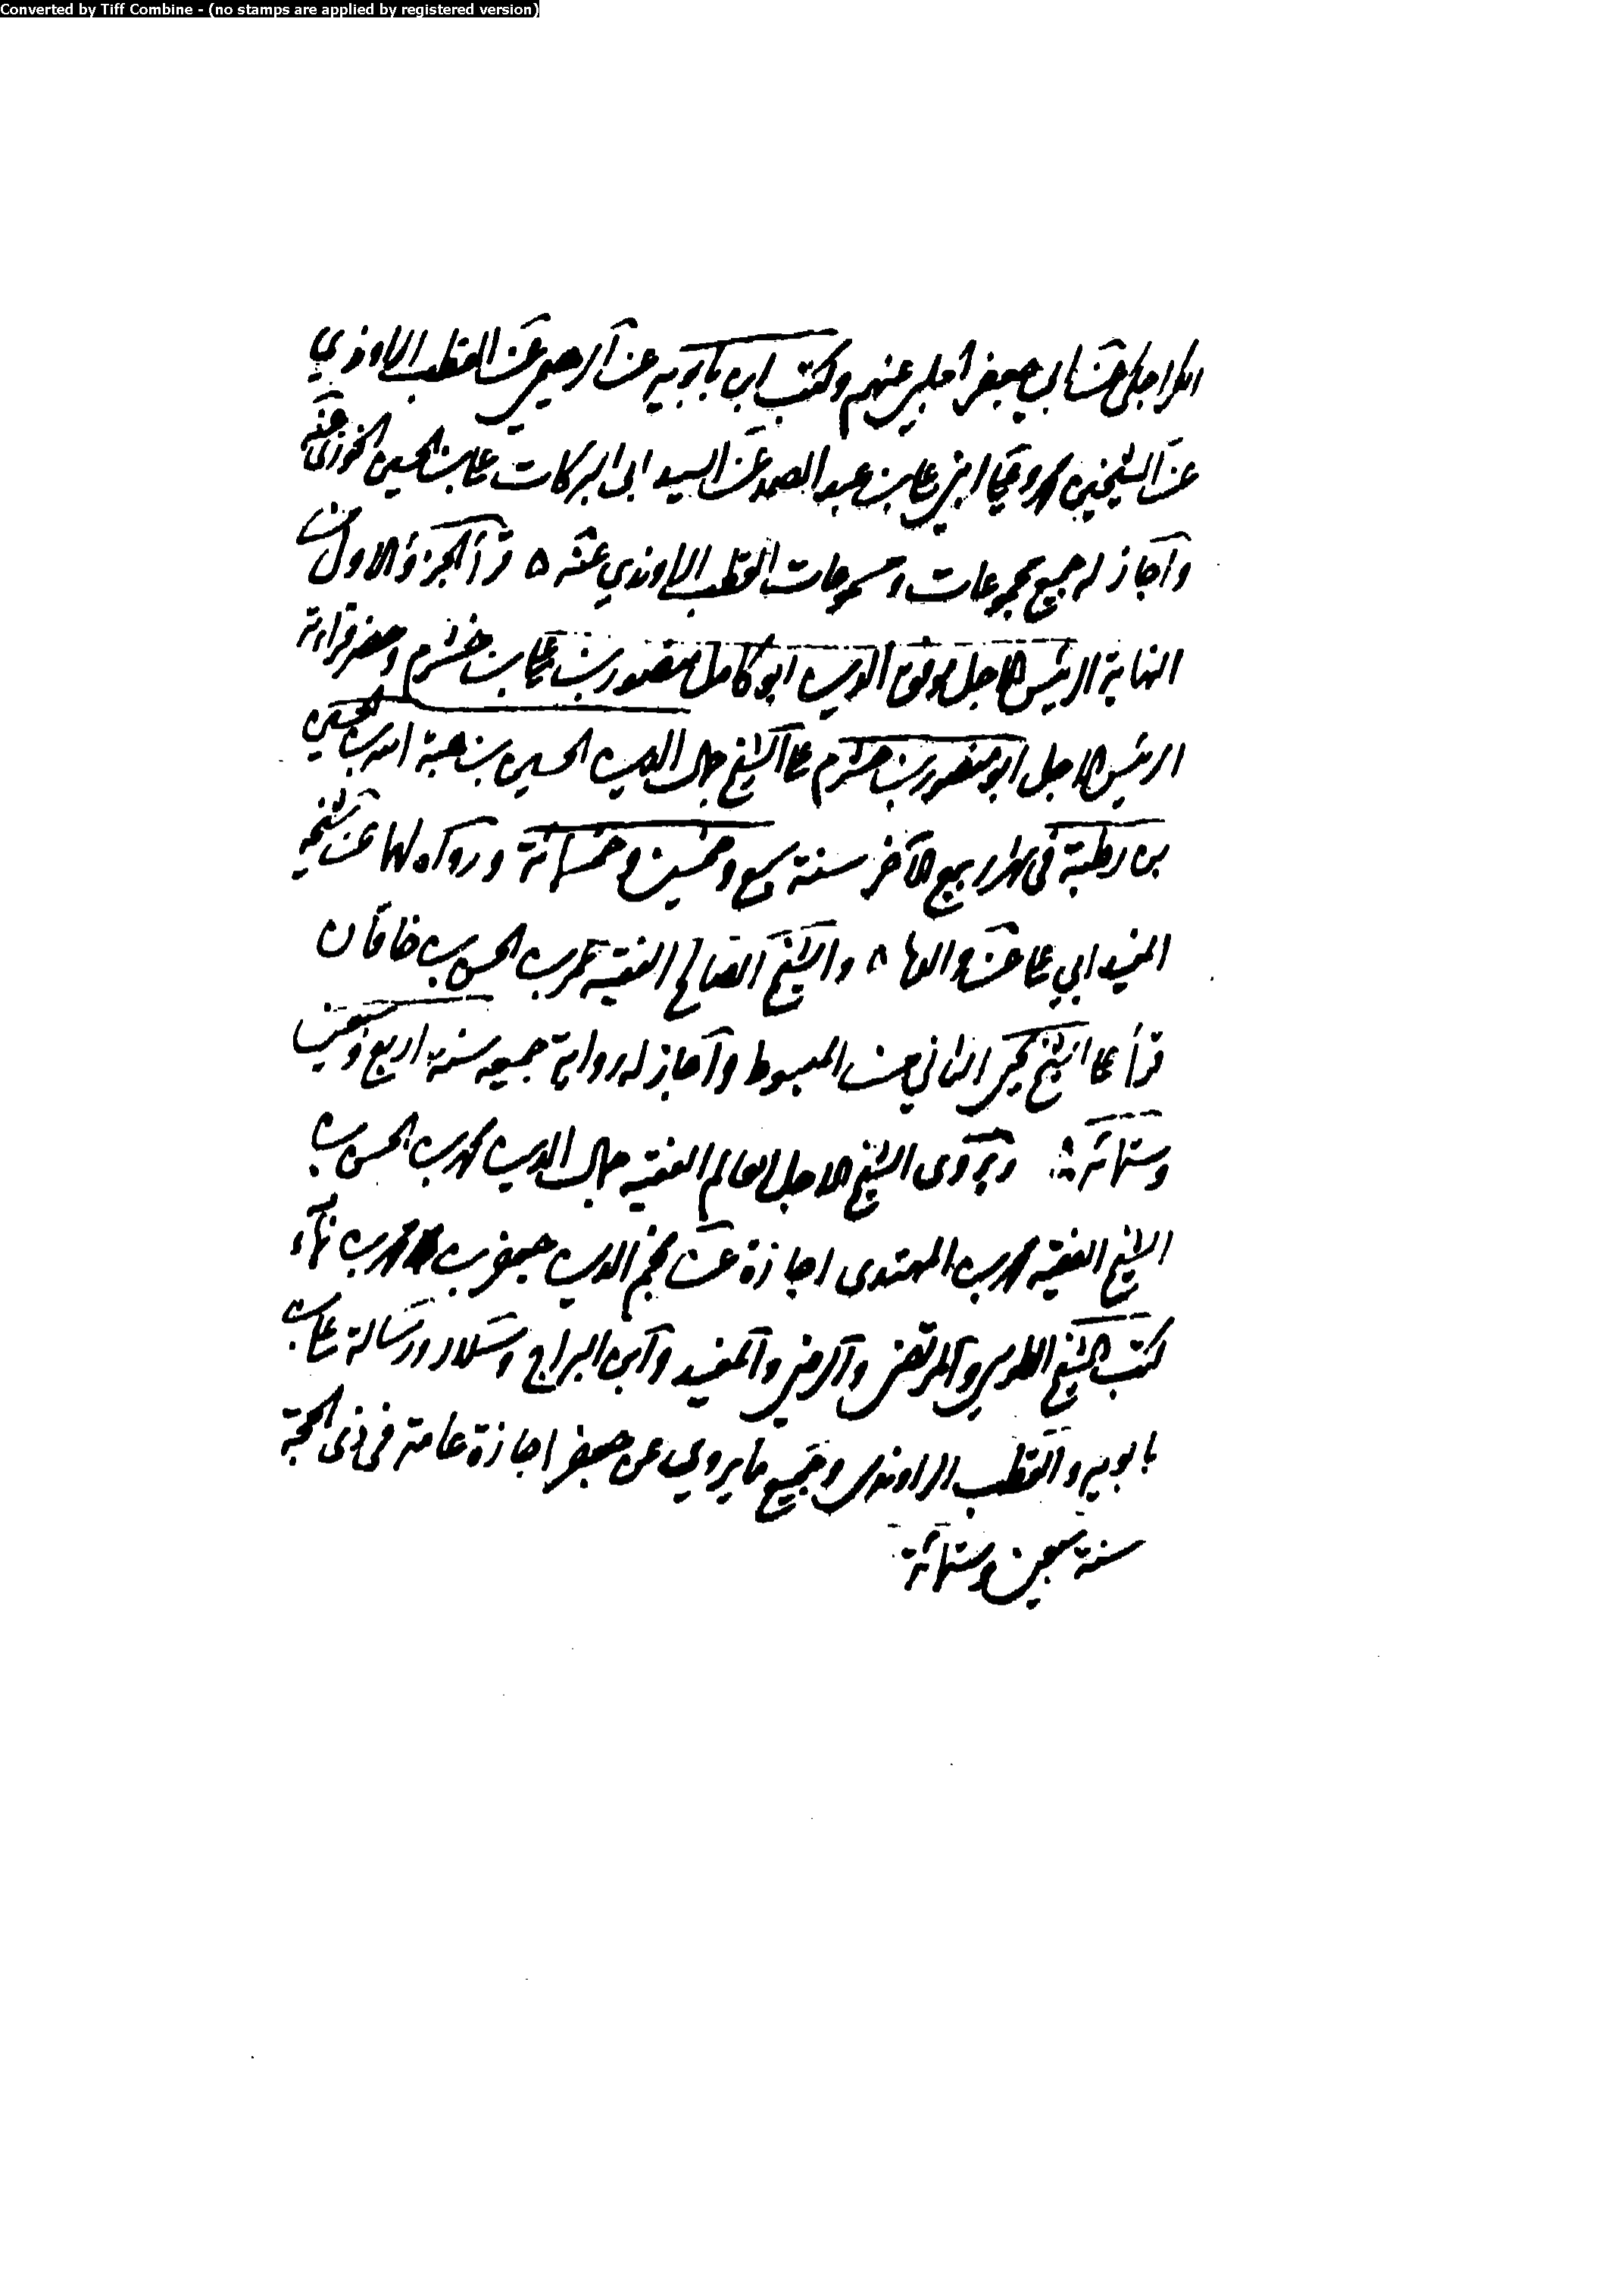 Converted by Tiff Combine - (no stamps are applied by registered version)
الكراجكي عن ابي جعفر الحلبي عنهم وكتب ابن بابويه عن آل عن القطب الراوندي
عن الشيخين محمد وعلي ابني علي بن عبد الصمد عن السيد ابي البركات علي بن الحسين الخوزي عنه
وآجاز له جميع مجموعات ومسموعات القطب الراوندي عنه ٥ قرأ الجزؤ الاول من
النهاية الرئيس الاجل موفق الدين ابو كامل منصور بن علي بن خشرم وحضر قراءته
الرئيس الاجل ابو منصور بن خشرم علي الشيخ جمال الدين الحسين بن هبة الله بن الحسين
بن رطبة في شهر ربيع الآخر سنة سبع وخمسين وخمسمائة ورواه لهما عن شيخه
المفيد ابي علي عن والده ٥ والشيخ الصالح الفقيه محمد بن الحسن بن خاقان
قرأ علي الشيخ الثاني من المبسوط وآجاز له رواية جميعه سنة اربع وسبعين
وستمائة ويروى الشيخ الاجل العالم الفقيه جمال الدين محمد بن الحسن بن
الشيخ الفقيه محمد بن المهتدى اجازة عن نجم الدين جعفر بن محمد بن نماء
كتب الشيخ الطوسي والمرتضى وآلرضي وآلمفيد وآبن البراج وسلار ورسالة علي بن
بابويه والقطب الراوندي وجميع ما يروي عن جعفر اجازة عامة في ذى الحجة
سنة سبعين وستمائة